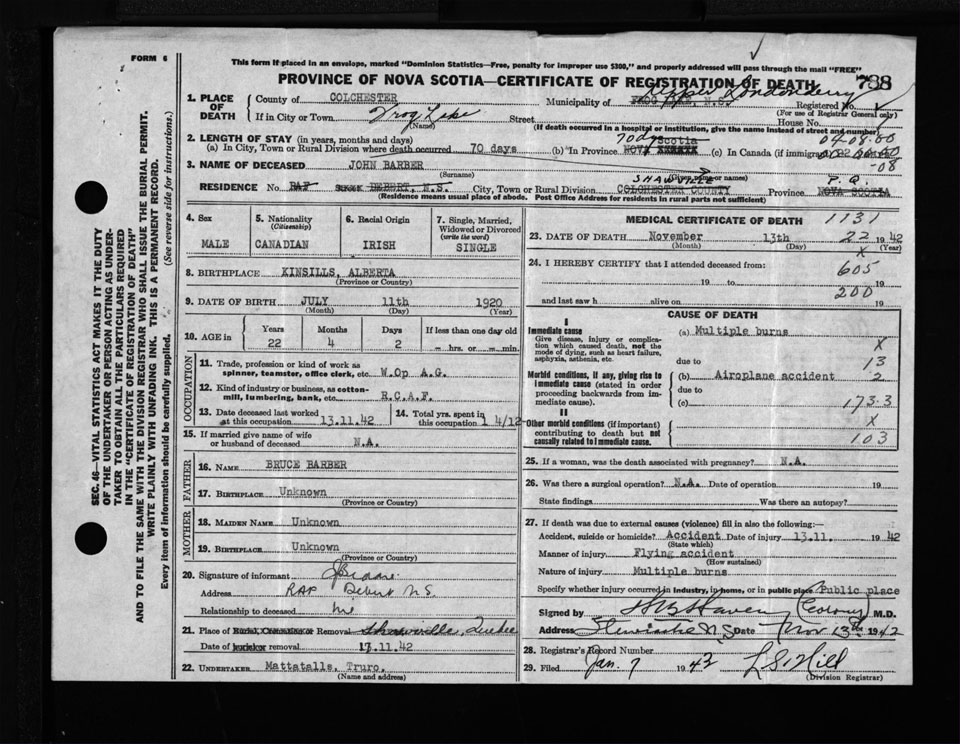 FORM 6
This form if placed in an envelope, marked "Dominion Statistics—Free, penalty for improper use $300," and properly addressed will pass through the mail "FREE"
PROVINCE OF NOVA SCOTIA—CERTIFICATE OF REGISTRATION OF DEATH
788
Upper Londonderry
1. PLACE OF DEATH
County of COLCHESTER
Municipality of FROG LAKE, N.S.
Registered No.
(For use of Registrar General only)
If in City or Town Frog Lake Street House No.
(Name)
(If death occurred in a hospital or institution, give the name instead of street and number)
2. LENGTH OF STAY (in years, months and days)
70 dys
04-08-80
(a) In City, Town or Rural Division where death occurred 70 days (b) In Province NOVA Scotia (c) In Canada (if immigrant)
-08
3. NAME OF DECEASED JOHN BARBER
(Surname) (Given or names)
SHAWVILLE P.Q.
RESIDENCE No. RAF DEBERT, N.S. City, Town or Rural Division COLCHESTER COUNTY Province NOVA SCOTIA
(Residence means usual place of abode. Post Office Address for residents in rural parts not sufficient)
4. Sex MALE
5. Nationality (Citizenship) CANADIAN
6. Racial Origin IRISH
7. Single, Married, Widowed or Divorced (write the word) SINGLE
8. BIRTHPLACE KINSILLS, ALBERTA
(Province or Country)
9. DATE OF BIRTH JULY 11th 1920
(Month) (Day) (Year)
10. AGE in Years Months Days If less than one day old
22 4 2 – hrs. or – min.
OCCUPATION
11. Trade, profession or kind of work as spinner, teamster, office clerk, etc. W.Op A.G.
12. Kind of industry or business, as cotton-mill, lumbering, bank, etc. R.C.A.F.
13. Date deceased last worked at this occupation 13.11.42
14. Total yrs. spent in this occupation 1 4/12
15. If married give name of wife or husband of deceased N.A.
FATHER
16. NAME BRUCE BARBER
17. BIRTHPLACE Unknown
(Province or Country)
MOTHER
18. MAIDEN NAME Unknown
19. BIRTHPLACE Unknown
(Province or Country)
20. Signature of informant
Address RAF Debert N.S.
Relationship to deceased
21. Place of Burial, Cremation or Removal Shawville, Quebec
Date of burial or removal 13.11.42
22. UNDERTAKER Mattatalls, Truro.
(Name and address)
MEDICAL CERTIFICATE OF DEATH
1131
23. DATE OF DEATH November 13th 22 1942
(Month) (Day) (Year)
X
24. I HEREBY CERTIFY that I attended deceased from:
605
19 to 19
200
and last saw h alive on 19
CAUSE OF DEATH
I
Immediate cause
Give disease, injury or complication which caused death, not the mode of dying, such as heart failure, asphyxia, asthenia, etc.
(a) Multiple burns
X
due to 13
Morbid conditions, if any, giving rise to immediate cause (stated in order proceeding backwards from immediate cause).
(b) Airoplane accident 2
due to
(c) 173.3
II
Other morbid conditions (if important) contributing to death but not causally related to immediate cause.
X
103
25. If a woman, was the death associated with pregnancy? N.A.
26. Was there a surgical operation? N.A. Date of operation 19
State findings Was there an autopsy?
27. If death was due to external causes (violence) fill in also the following:—
Accident, suicide or homicide? Accident Date of injury 13.11. 1942
(State which)
Manner of injury Flying accident
(How sustained)
Nature of injury Multiple burns
Specify whether injury occurred in industry, in home, or in public place Public place
Signed by M.D.
Address N.S. Date Nov 13th 1942
28. Registrar's Record Number
29. Filed Jan. 7 1943 L S Hill
(Division Registrar)
SEC. 46—VITAL STATISTICS ACT MAKES IT THE DUTY
OF THE UNDERTAKER OR PERSON ACTING AS UNDERTAKER TO OBTAIN ALL THE PARTICULARS REQUIRED
IN THE "CERTIFICATE OF REGISTRATION OF DEATH"
AND TO FILE THE SAME WITH THE DIVISION REGISTRAR WHO SHALL ISSUE THE BURIAL PERMIT.
WRITE PLAINLY WITH UNFADING INK. THIS IS A PERMANENT RECORD.
Every item of information should be carefully supplied. (See reverse side for instructions.)